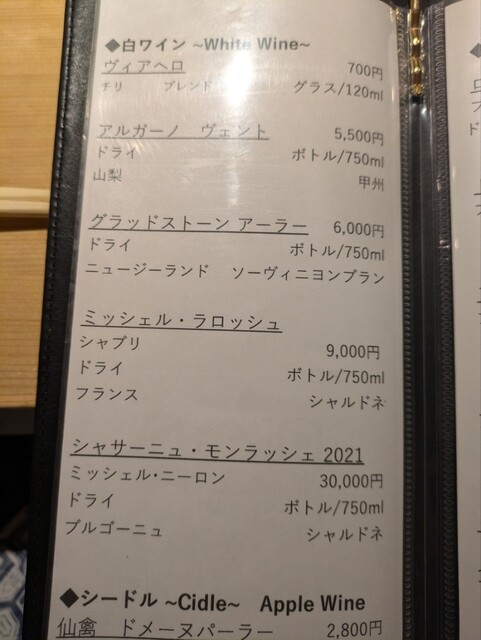 ◆白ワイン ~White Wine~
ヴィアヘロ 700円
チリ ブレンド グラス/120ml
アルガーノ ヴェント 5,500円
ドライ ボトル/750ml
山梨 甲州
グラッドストーン アーラー 6,000円
ドライ ボトル/750ml
ニュージーランド ソーヴィニヨンブラン
ミッシェル・ラロッシュ
シャブリ 9,000円
ドライ ボトル/750ml
フランス シャルドネ
シャサーニュ・モンラッシェ 2021
ミッシェル・ニーロン 30,000円
ドライ ボトル/750ml
ブルゴーニュ シャルドネ
◆シードル ~Cidle~ Apple Wine
仙禽 ドメーヌパーラー 2,800円